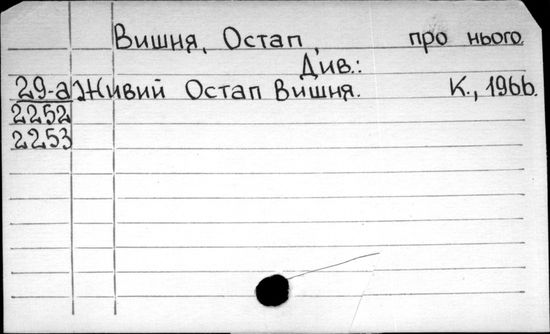 Вишня, Остап, про нього.
Див.:
29-а Живий Остап Вишня. К., 1966.
2252
2253